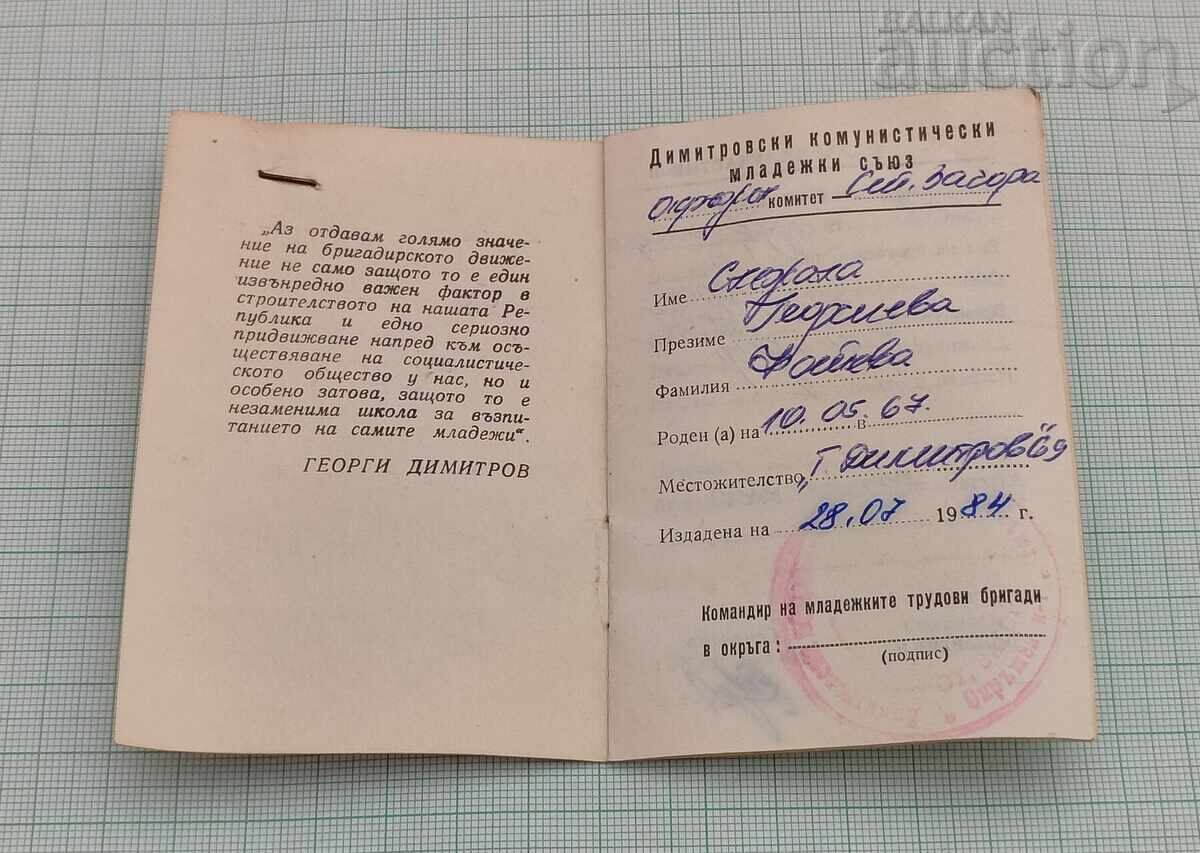 BALKAN
auction
„Аз отдавам голямо значе-
ние на бригадирското движе-
ние не само защото то е един
извънредно важен фактор в
строителството на нашата Ре-
публика и едно сериозно
придвижване напред към осъ-
ществяване на социалистиче-
ското общество у нас, но и
особено затова, защото то е
незаменима школа за възпи-
танието на самите младежи“.
ГЕОРГИ ДИМИТРОВ
Димитровски комунистически
младежки съюз
комитет Ст. Загора
Име
Презиме Георгиева
Фамилия
Роден (а) на 10.05.67. в
Местожителство „Г Димитров“ 69
Издадена на 28.07 1984 г.
Командир на младежките трудови бригади
в окръга:
(подпис)